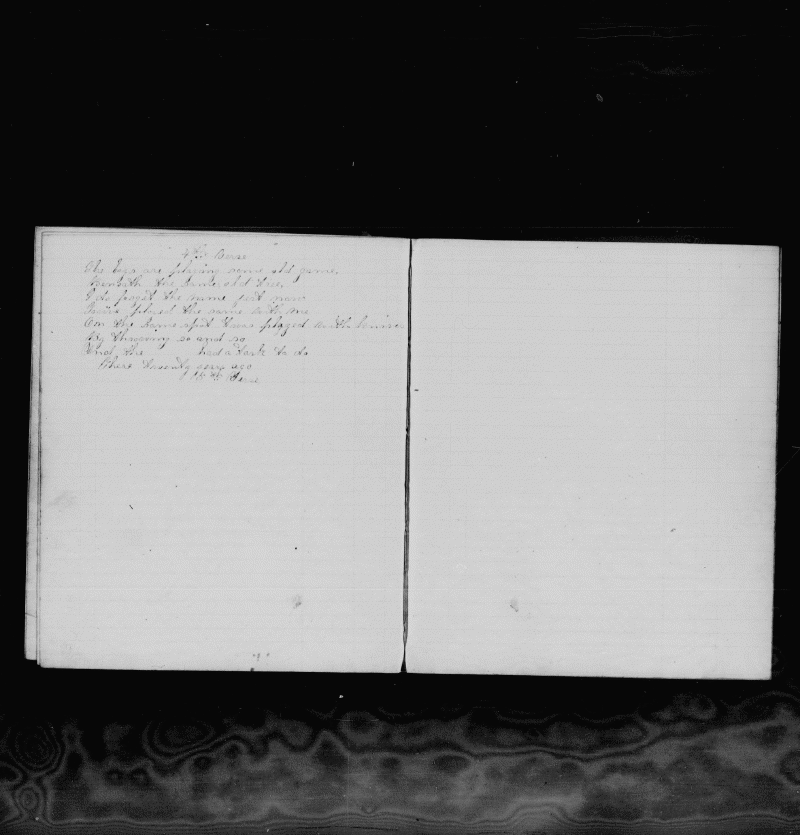 4th Verse
The boys are playing some old game,
Beneath the same old tree,
I do forget the name just now
played the same with me
On the same spot twas played with knives
By throwing so and so
And the had a task to do
There twenty years ago
Verse